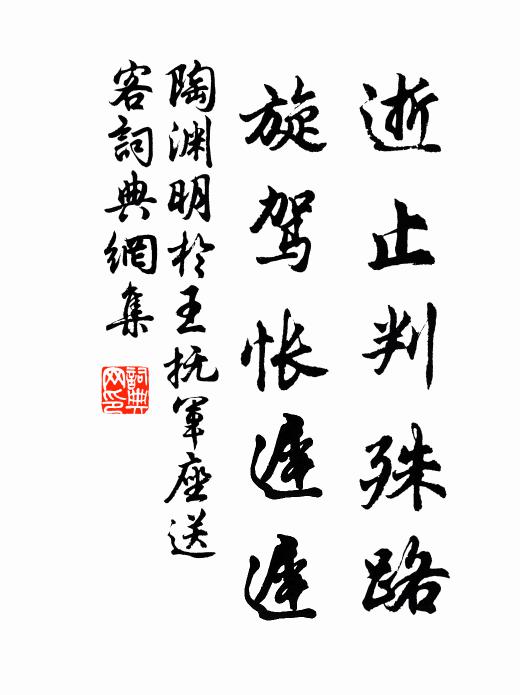 逝止判殊路
旋驾怅遲遲
陶渊明於王抚軍座送
客詞典網集
詞典
网印